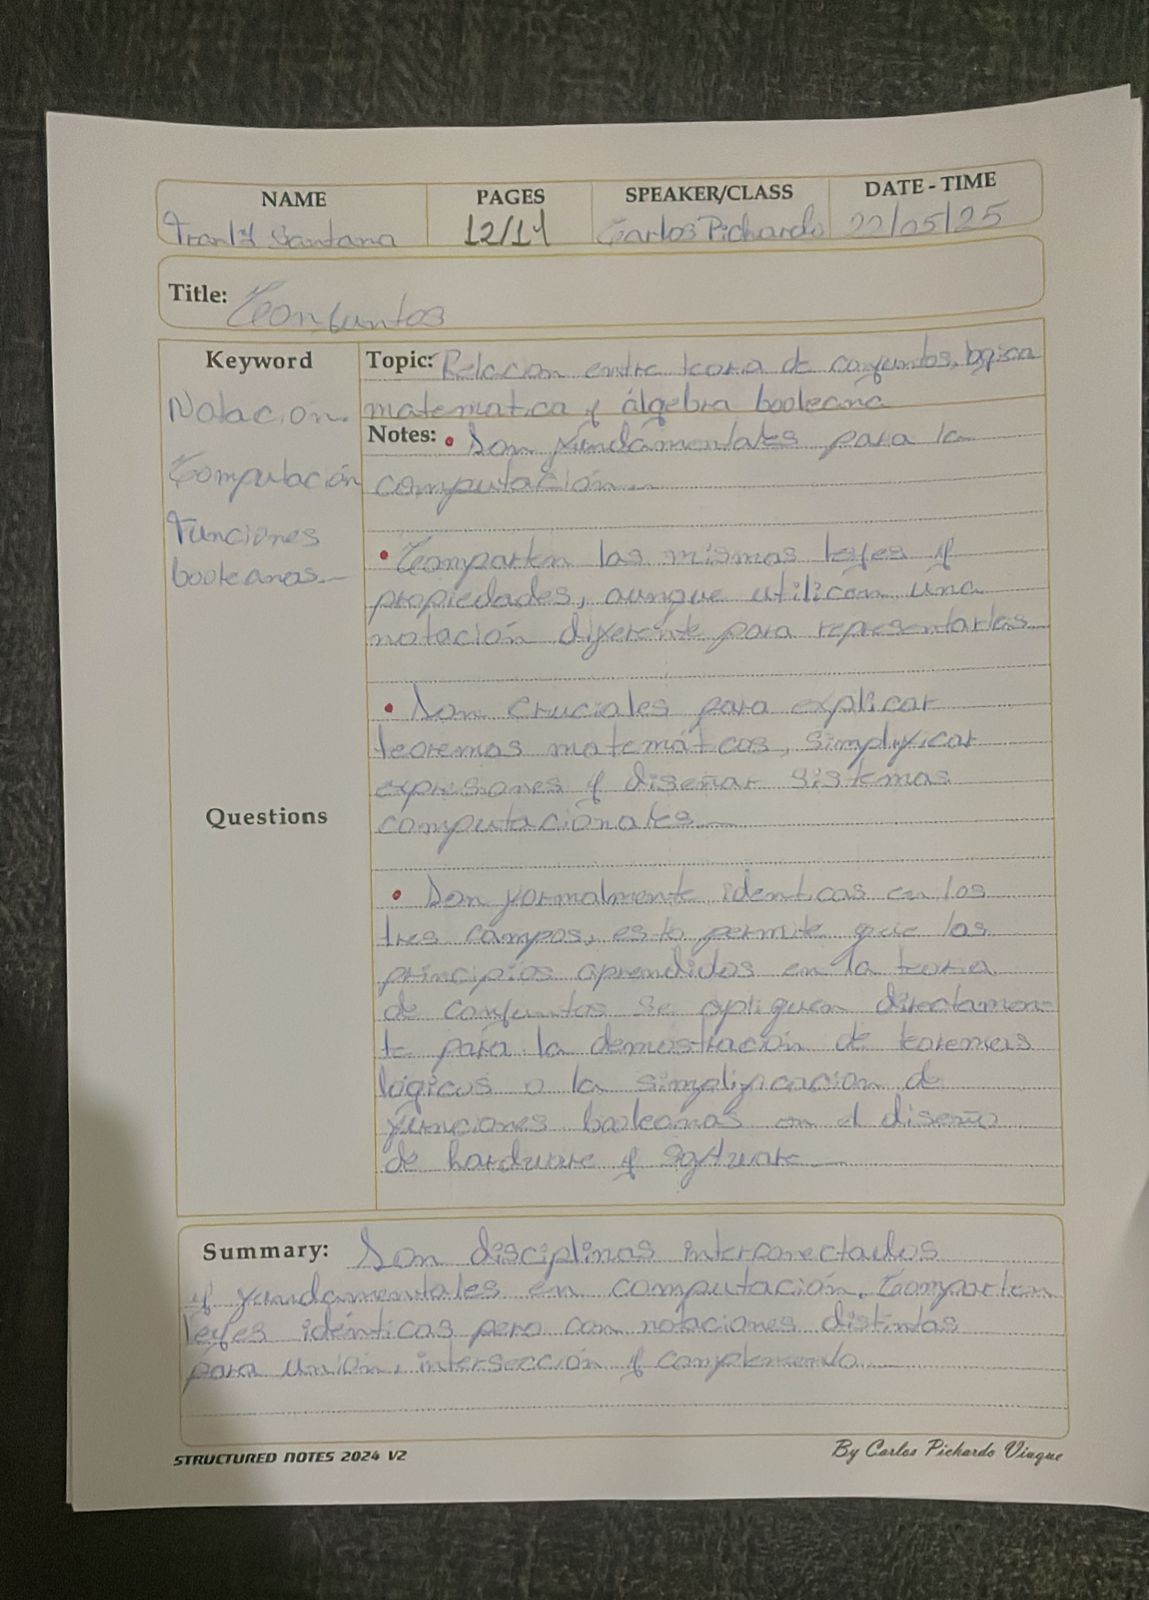 NAME
PAGES
SPEAKER/CLASS
DATE - TIME
Santana
12/14
Carlos Pichardo
22/05/25
Title: Conjuntos
Keyword
Notación.
Computación
Funciones
booleanas.
Questions
Topic: Relacion entre teoria de conjuntos, logica
matematica y álgebra booleana
Notes: • Son fundamentales para la
computación.
• Comparten las mismas leyes y
propiedades, aunque utilicen una
notación diferente para representarlas.
• Son cruciales para explicar
teoremas matemáticos, simplificar
expresiones y diseñar sistemas
computacionales.
• Son formalmente identicas en los
tres campos, esto permite que los
principios aprendidos en la teoria
de conjuntos se apliquen directamen-
te para la demostración de teoremas
lógicos o la simplificacion de
funciones booleanas en el diseño
de hardware y software.
Summary: Son disciplinas interconectadas
y fundamentales en computación. Comparten
leyes idénticas pero con notaciones distintas
para unión, intersección y complemento.
STRUCTURED NOTES 2024 V2
By Carlos Pichardo Viuque